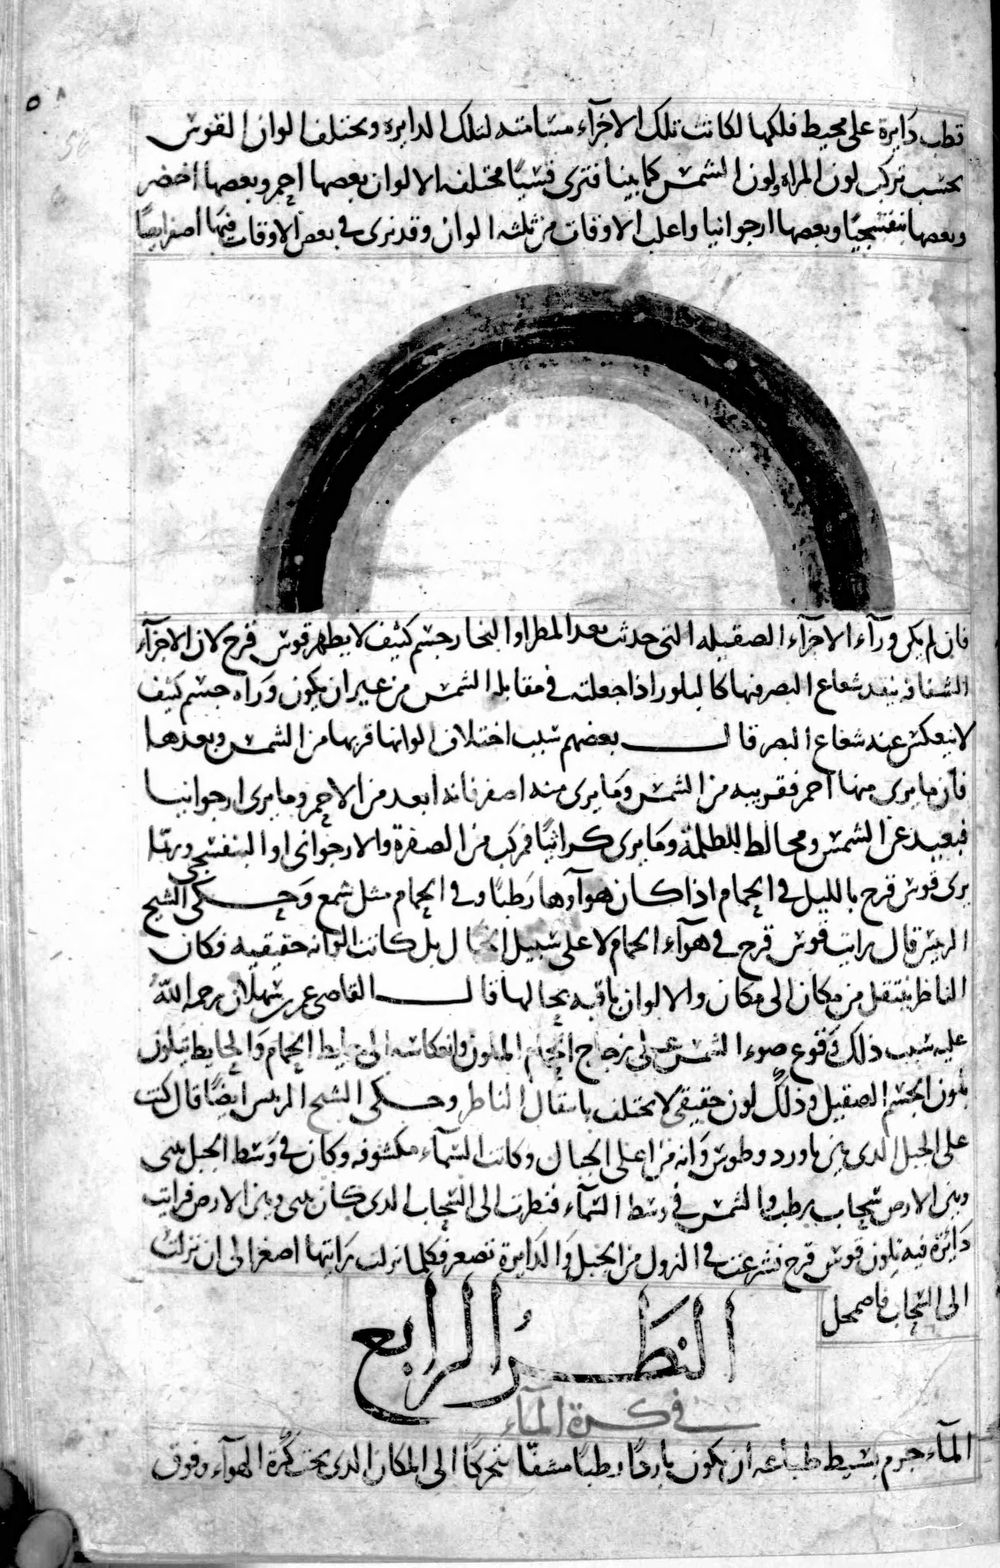 ٥٨
56
قطب دايرة على محيط فلكها لكانت تلك الاجزآء مسامتة لتلك الدايرة وتختلف الوان القوس
بحسب تركب لون المراة ولون الشمس كما بينا فترى قسيا مختلفة الالوان بعضها احمر وبعضها اخضر
وبعضها بنفسجيا وبعضها ارجوانيا واغلب الاوقات من ثلثة الوان وقد نرى فى بعض الاوقات فيها اصفر ايضا
فان لم يكن ورآء الاجزآء الصقيلة التى حدثت بعد المطر او البخار جسم كثيف لا يظهر قوس قزح لان الاجزآء
الشفافة ينفذ شعاع البصر فيها كالبلور اذا جعلته فى مقابلة الشمس من غير ان يكون وراه جسم كثيف
لا ينعكس عنه شعاع البصر قال بعضهم سبب اختلاف الوانها قربها من الشمس وبعدها
فان ما يرى منها احمر فقريبه من الشمس وما يرى منه اصفر فانه ابعد من الاحمر وما يرى ارجوانيا
فبعيد عن الشمس ومخالط للظلمة وما يرى كراثيا فمركب من الصفرة والارجوانى او البنفسجى وربما
يرى قوس قزح بالليل فى الحمام اذا كان هوآوها رطبا وفى الحمام مثل شمع وحكى الشيخ
الرييس قال رايت قوس قزح فى هوآء الحمام لا على سبيل الخيال بل كانت الوانه حقيقية فكان
الناظر ينتقل من مكان الى مكان والالوان باقية بحالها قال القاضى عمر بن سهلان رحمة الله
عليه سبب ذلك وقوع ضوء الشمس على زجاج الحمام الملون وانعكاسه الى حايط الحمام والحايط يتلون
بلون الجسم الصقيل وذلك لون حقيقى لا يختلف بانتقال الناظر وحكى الشيخ الرييس ايضا قال كنت
على الجبل الذى بين باورد وطوس وانه من اعلى الجبال وكانت السمآء مكشوفة وكان فى وسط الجبل بينى
وبين الارض سحاب رطب والشمس فى وسط السمآء فنظرت الى السحاب الذى كان بينى وبين الارض فرايت
دايرة فيه بلون قوس قزح فشرعت فى النزول من الجبل والدايرة تصغر فكلما نزلت رايتها اصغر الى ان نزلت
الى السحاب فاضمحل
النظر الرابع
فى كرة المآء
المآء جرم بسيط طباعه ان يكون باردا رطبا مشفا متحركا الى المكان الذى تحت كرة الهوآء وفوق